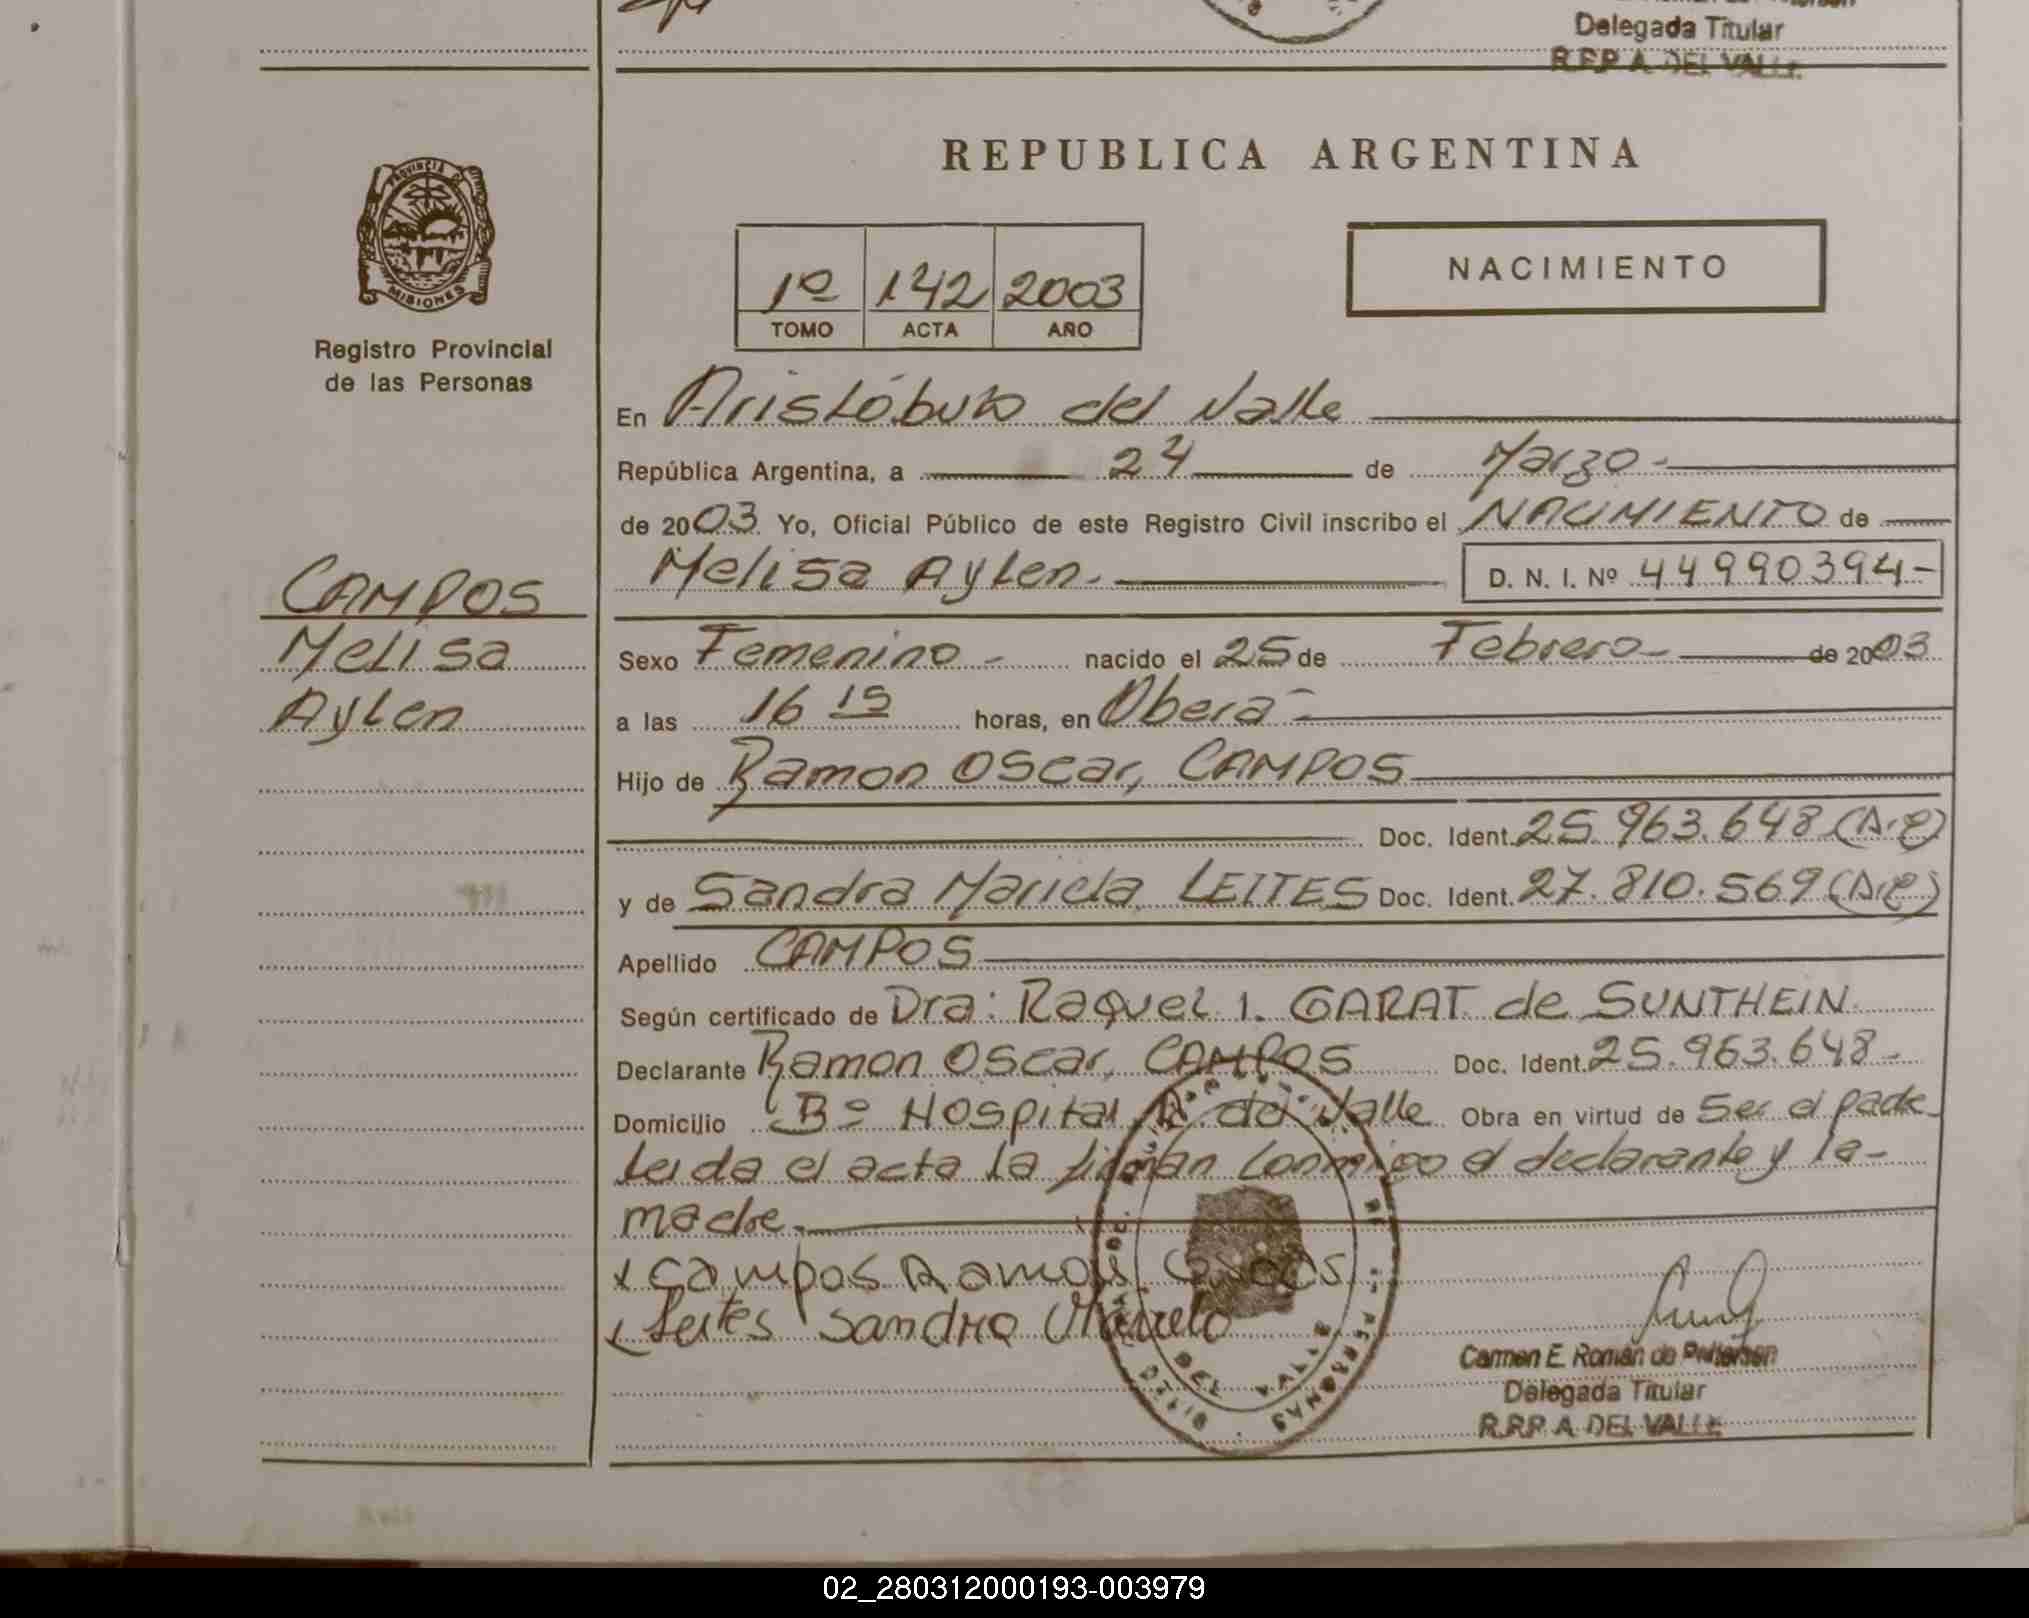 Delegada Titular
R.P.P. A. DEL VALLE
PROVINCIA DE
MISIONES
Registro Provincial
de las Personas
REPUBLICA ARGENTINA
1º 142 2003
TOMO ACTA AÑO
NACIMIENTO
En Aristóbulo del Valle
República Argentina, a 24 de Marzo
de 2003 Yo, Oficial Público de este Registro Civil inscribo el NACIMIENTO de
Melisa Aylen. D. N. I. Nº 44990394-
CAMPOS
Melisa
Aylen
Sexo Femenino - nacido el 25 de Febrero de 2003
a las 16 15 horas, en Oberá
Hijo de Ramon Oscar, CAMPOS
Doc. Ident. 25.963.648 (Arg)
y de Sandra Mariela LEITES Doc. Ident. 27.810.569 (Arg)
Apellido CAMPOS
Según certificado de Dra: Raquel I. GARAT de SUNTHEIN
Declarante Ramon Oscar, CAMPOS Doc. Ident. 25.963.648-
Domicilio Bº Hospital A. del Valle Obra en virtud de Ser el padre
Leida el acta la firman conmigo el declarante y la-
madre.
x Campos Ramon
x Leites Sandra Mariela
Carmen E. Román de
Delegada Titular
R.P.P. A. DEL VALLE
02_280312000193-003979